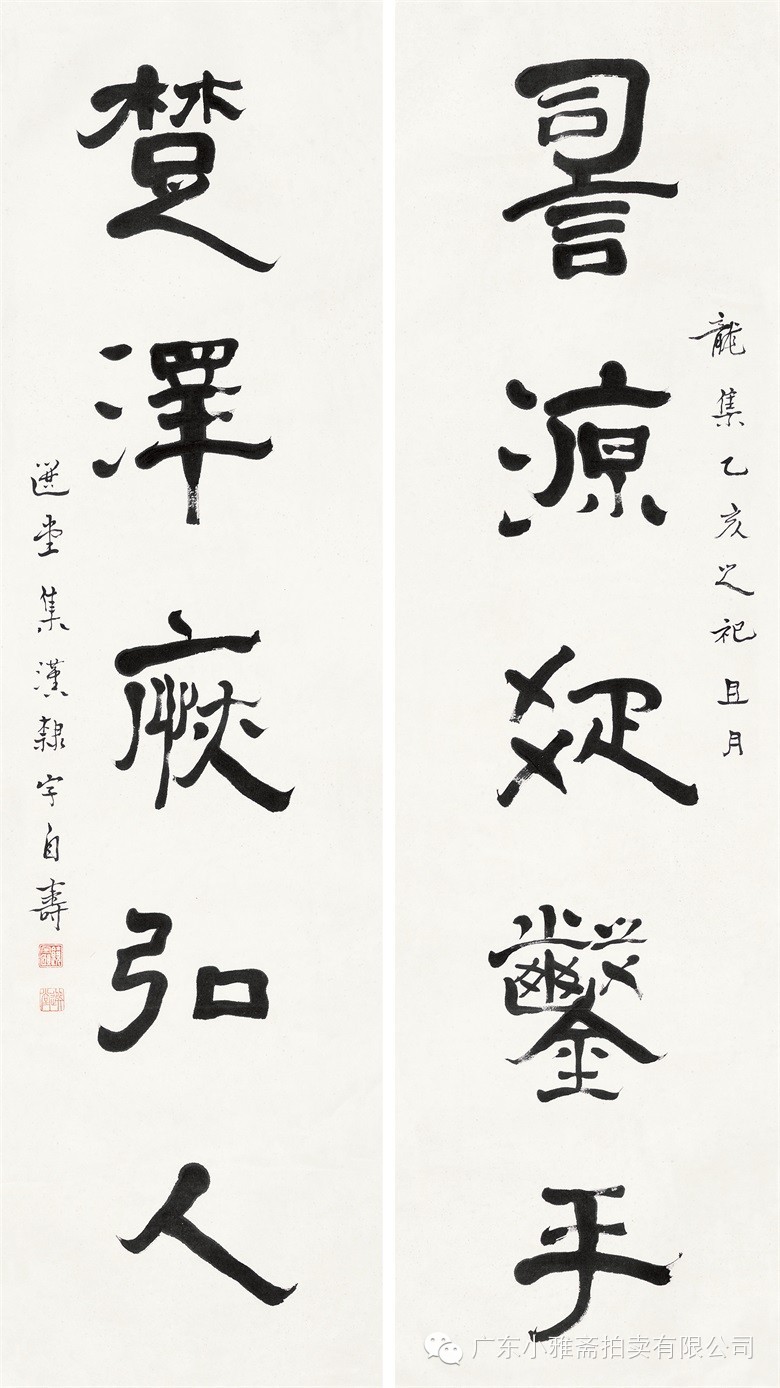 䛐源疏鑿手
龍集乙亥之祀且月
楚澤弘人
選堂集漢隸字自壽
广东小雅斋拍卖有限公司